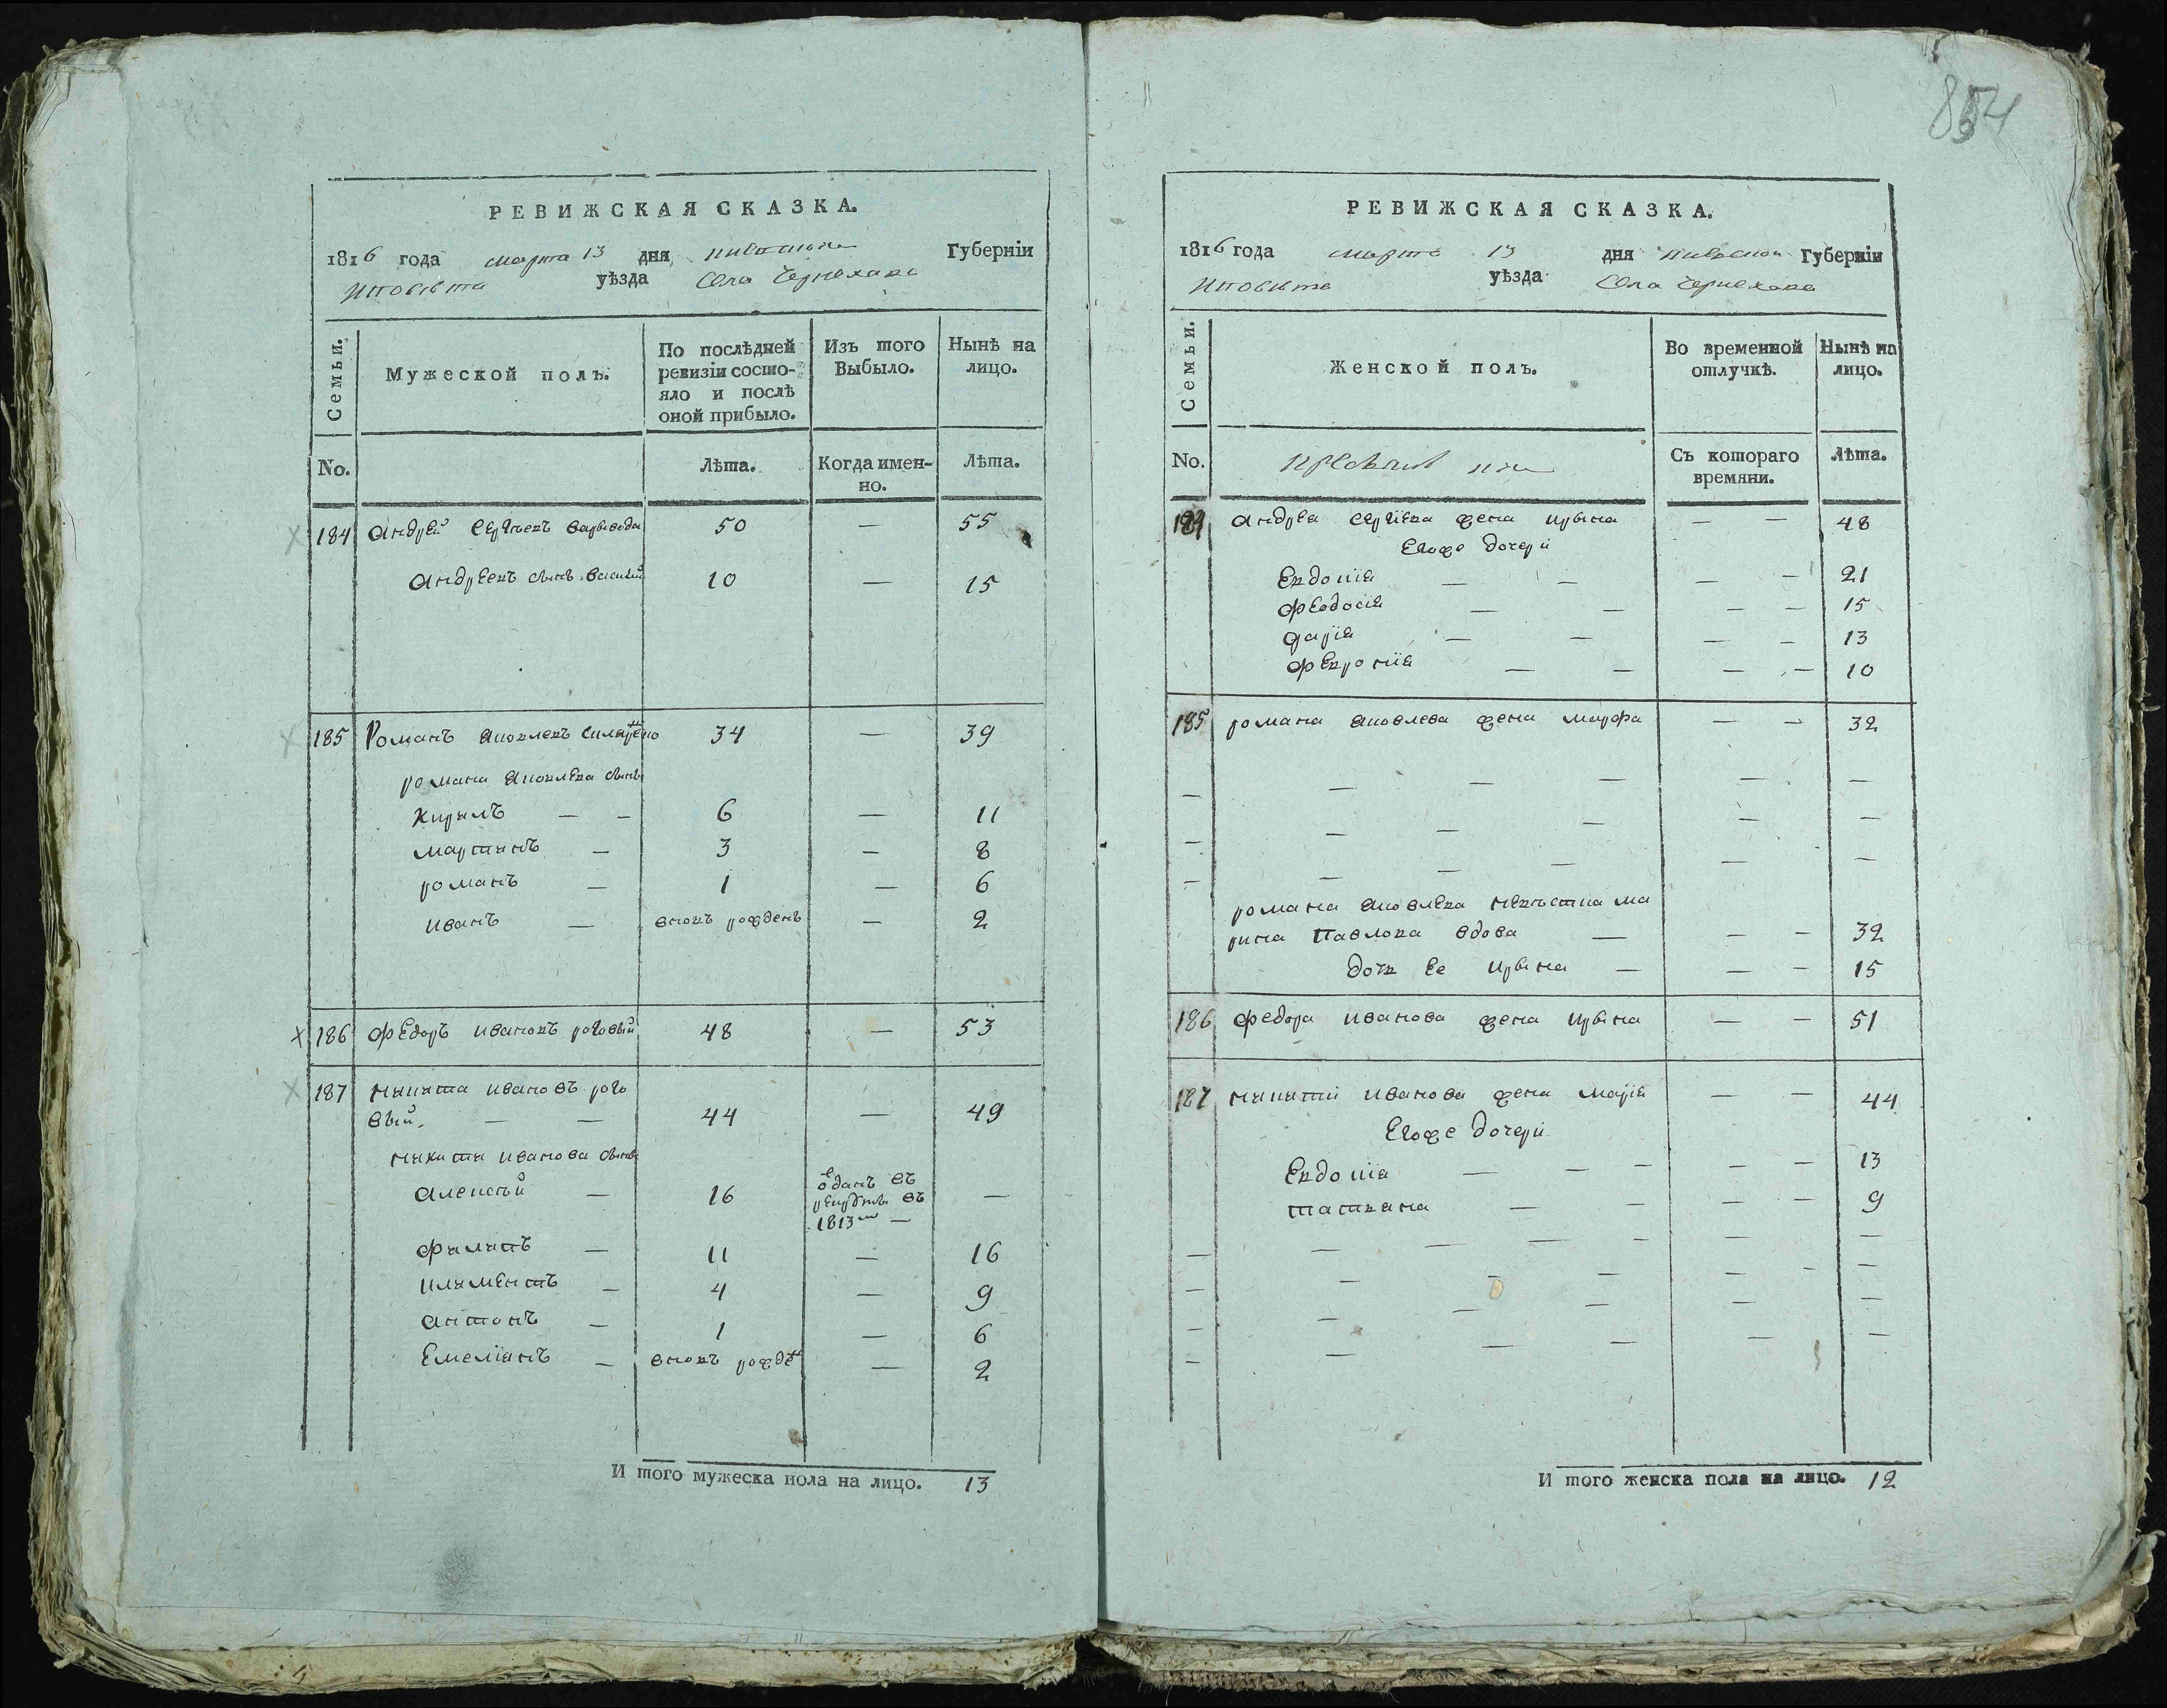 854
РЕВИЖСКАЯ СКАЗКА.
1816 года марта 13 дня Киевской Губерніи
уѣзда Села Черняхова
Семьи.
Мужеской полъ.
По послѣдней ревизіи состояло и послѣ оной прибыло.
Изъ того Выбыло.
Нынѣ на лицо.
No.
Лѣта.
Когда именно.
Лѣта.
184 Андрей Сергѣевъ 50 — 55
Андреевъ сынъ Василий 10 — 15
185 Романъ Яковлевъ 34 — 39
романа Яковлева сыны
Кирилъ — — 6 — 11
мартинъ — 3 — 8
романъ — 1 — 6
иванъ — вновь рожденъ — 2
186 Федоръ Ивановъ роговый 48 — 53
187 Никита Ивановъ рого
вый. — — 44 — 49
Никиты Иванова сыны
Алексѣй — 16 одан въ рекруты въ 1813м — —
Филипъ — 11 — 16
Климентъ — 4 — 9
Антонъ — 1 — 6
Емелїанъ — вновь рожден — 2
И того мужеска пола на лицо. 13
РЕВИЖСКАЯ СКАЗКА.
1816 года марта 13 дня Киевской Губерніи
уѣзда Села Черняхова
Семьи.
Женской полъ.
Во временной отлучкѣ.
Нынѣ на лицо.
No.
Съ котораго времяни.
Лѣта.
184 Андрея Сергїева жена Ирына — — 48
Егоже дочери
Евдокїя — — — — 21
Феодосїя — — — — 15
Дарїя — — — — 13
Феврониїя — — — — 10
185 романа Яковлева жена марфа — — 32
романа Яковлева невѣстка ма
рина Павлова вдова — — — 32
дочь Ее Ирына — — — 15
186 Федора Иванова жена Ирына — — 51
187 Никити Иванова жена Марїя — — 44
Егоже дочери
Евдокїя — — — — — 13
татияна — — — — 9
И того женска пола на лицо. 12